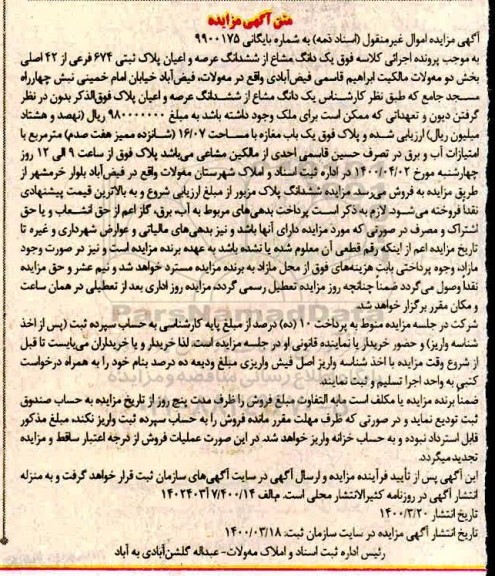 متن آگهی مزایده
آگهی مزایده اموال غیرمنقول (اسناد ذمه) به شماره بایگانی ۹۹۰۰۱۷۵
به موجب پرونده اجرائی کلاسه فوق یک دانگ مشاع از ششدانگ عرصه و اعیان پلاک ثبتی ۶۷۴ فرعی از ۴۲ اصلی
بخش دو مه‌ولات مالکیت ابراهیم قاسمی فیض‌آبادی واقع در مه‌ولات، فیض‌آباد خیابان امام خمینی نبش چهارراه
مسجد جامع که طبق نظر کارشناس یک دانگ مشاع از ششدانگ عرصه و اعیان پلاک فوق‌الذکر بدون در نظر
گرفتن دیون و تعهداتی که ممکن است برای ملک وجود داشته باشد به مبلغ ۹۸۰۰۰۰۰۰۰ ریال (نهصد و هشتاد
میلیون ریال) ارزیابی شده و پلاک فوق یک باب مغازه با مساحت ۱۶/۰۷ (شانزده ممیز هفت صدم) مترمربع با
امتیازات آب و برق در تصرف حسین قاسمی احدی از مالکین مشاعی می‌باشد پلاک فوق از ساعت ۹ الی ۱۲ روز
چهارشنبه مورخ ۱۴۰۰/۰۴/۰۲ در اداره ثبت اسناد و املاک شهرستان مه‌ولات واقع در فیض‌آباد بلوار خرمشهر از
طریق مزایده به فروش می‌رسد. مزایده ششدانگ پلاک مزبور از مبلغ ارزیابی شروع و به بالاترین قیمت پیشنهادی
نقداً فروخته می‌شود. لازم به ذکر است پرداخت بدهی‌های مربوط به آب، برق، گاز اعم از حق انشعاب و یا حق
اشتراک و مصرف در صورتی که مورد مزایده دارای آنها باشد و نیز بدهی‌های مالیاتی و عوارض شهرداری و غیره تا
تاریخ مزایده اعم از اینکه رقم قطعی آن معلوم شده یا نشده باشد به عهده برنده مزایده است و نیز در صورت وجود
مازاد، وجوه پرداختی بابت هزینه‌های فوق از محل مازاد به برنده مزایده مسترد خواهد شد و نیم عشر و حق مزایده
نقداً وصول می‌گردد ضمناً چنانچه روز مزایده تعطیل رسمی گردد، مزایده روز اداری بعد از تعطیلی در همان ساعت
و مکان مقرر برگزار خواهد شد.
شرکت در جلسه مزایده منوط به پرداخت ۱۰ (ده) درصد از مبلغ پایه کارشناسی به حساب سپرده ثبت (پس از اخذ
شناسه واریز) و حضور خریدار یا نماینده قانونی او در جلسه مزایده است، لذا خریدار و یا خریداران می‌بایست تا قبل
از شروع وقت مزایده با اخذ شناسه واریز اصل فیش واریزی مبلغ ودیعه ده درصد بنام خود را به همراه درخواست
کتبی به واحد اجرا تسلیم و ثبت نمایند.
ضمناً برنده مزایده یا مکلف است مابه التفاوت مبلغ فروش را ظرف مدت پنج روز از تاریخ مزایده به حساب صندوق
ثبت تودیع نماید و در صورتی که ظرف مهلت مقرر مانده فروش را به حساب سپرده ثبت واریز نکند، مبلغ مذکور
قابل استرداد نبوده و به حساب خزانه واریز خواهد شد. در این صورت عملیات فروش از درجه اعتبار ساقط و مزایده
تجدید میگردد.
این آگهی پس از تأیید فرآینده مزایده و ارسال آگهی در سایت آگهی‌های سازمان ثبت قرار خواهد گرفت و به منزله
انتشار آگهی در روزنامه کثیرالانتشار محلی است. م‌الف
تاریخ انتشار ۱۴۰۰/۳/۲۰
تاریخ انتشار آگهی مزایده در سایت سازمان ثبت: ۱۴۰۰/۰۳/۱۸
رئیس اداره ثبت اسناد و املاک مه‌ولات- عبداله گلشن‌آبادی به آباد
ParsNamadData